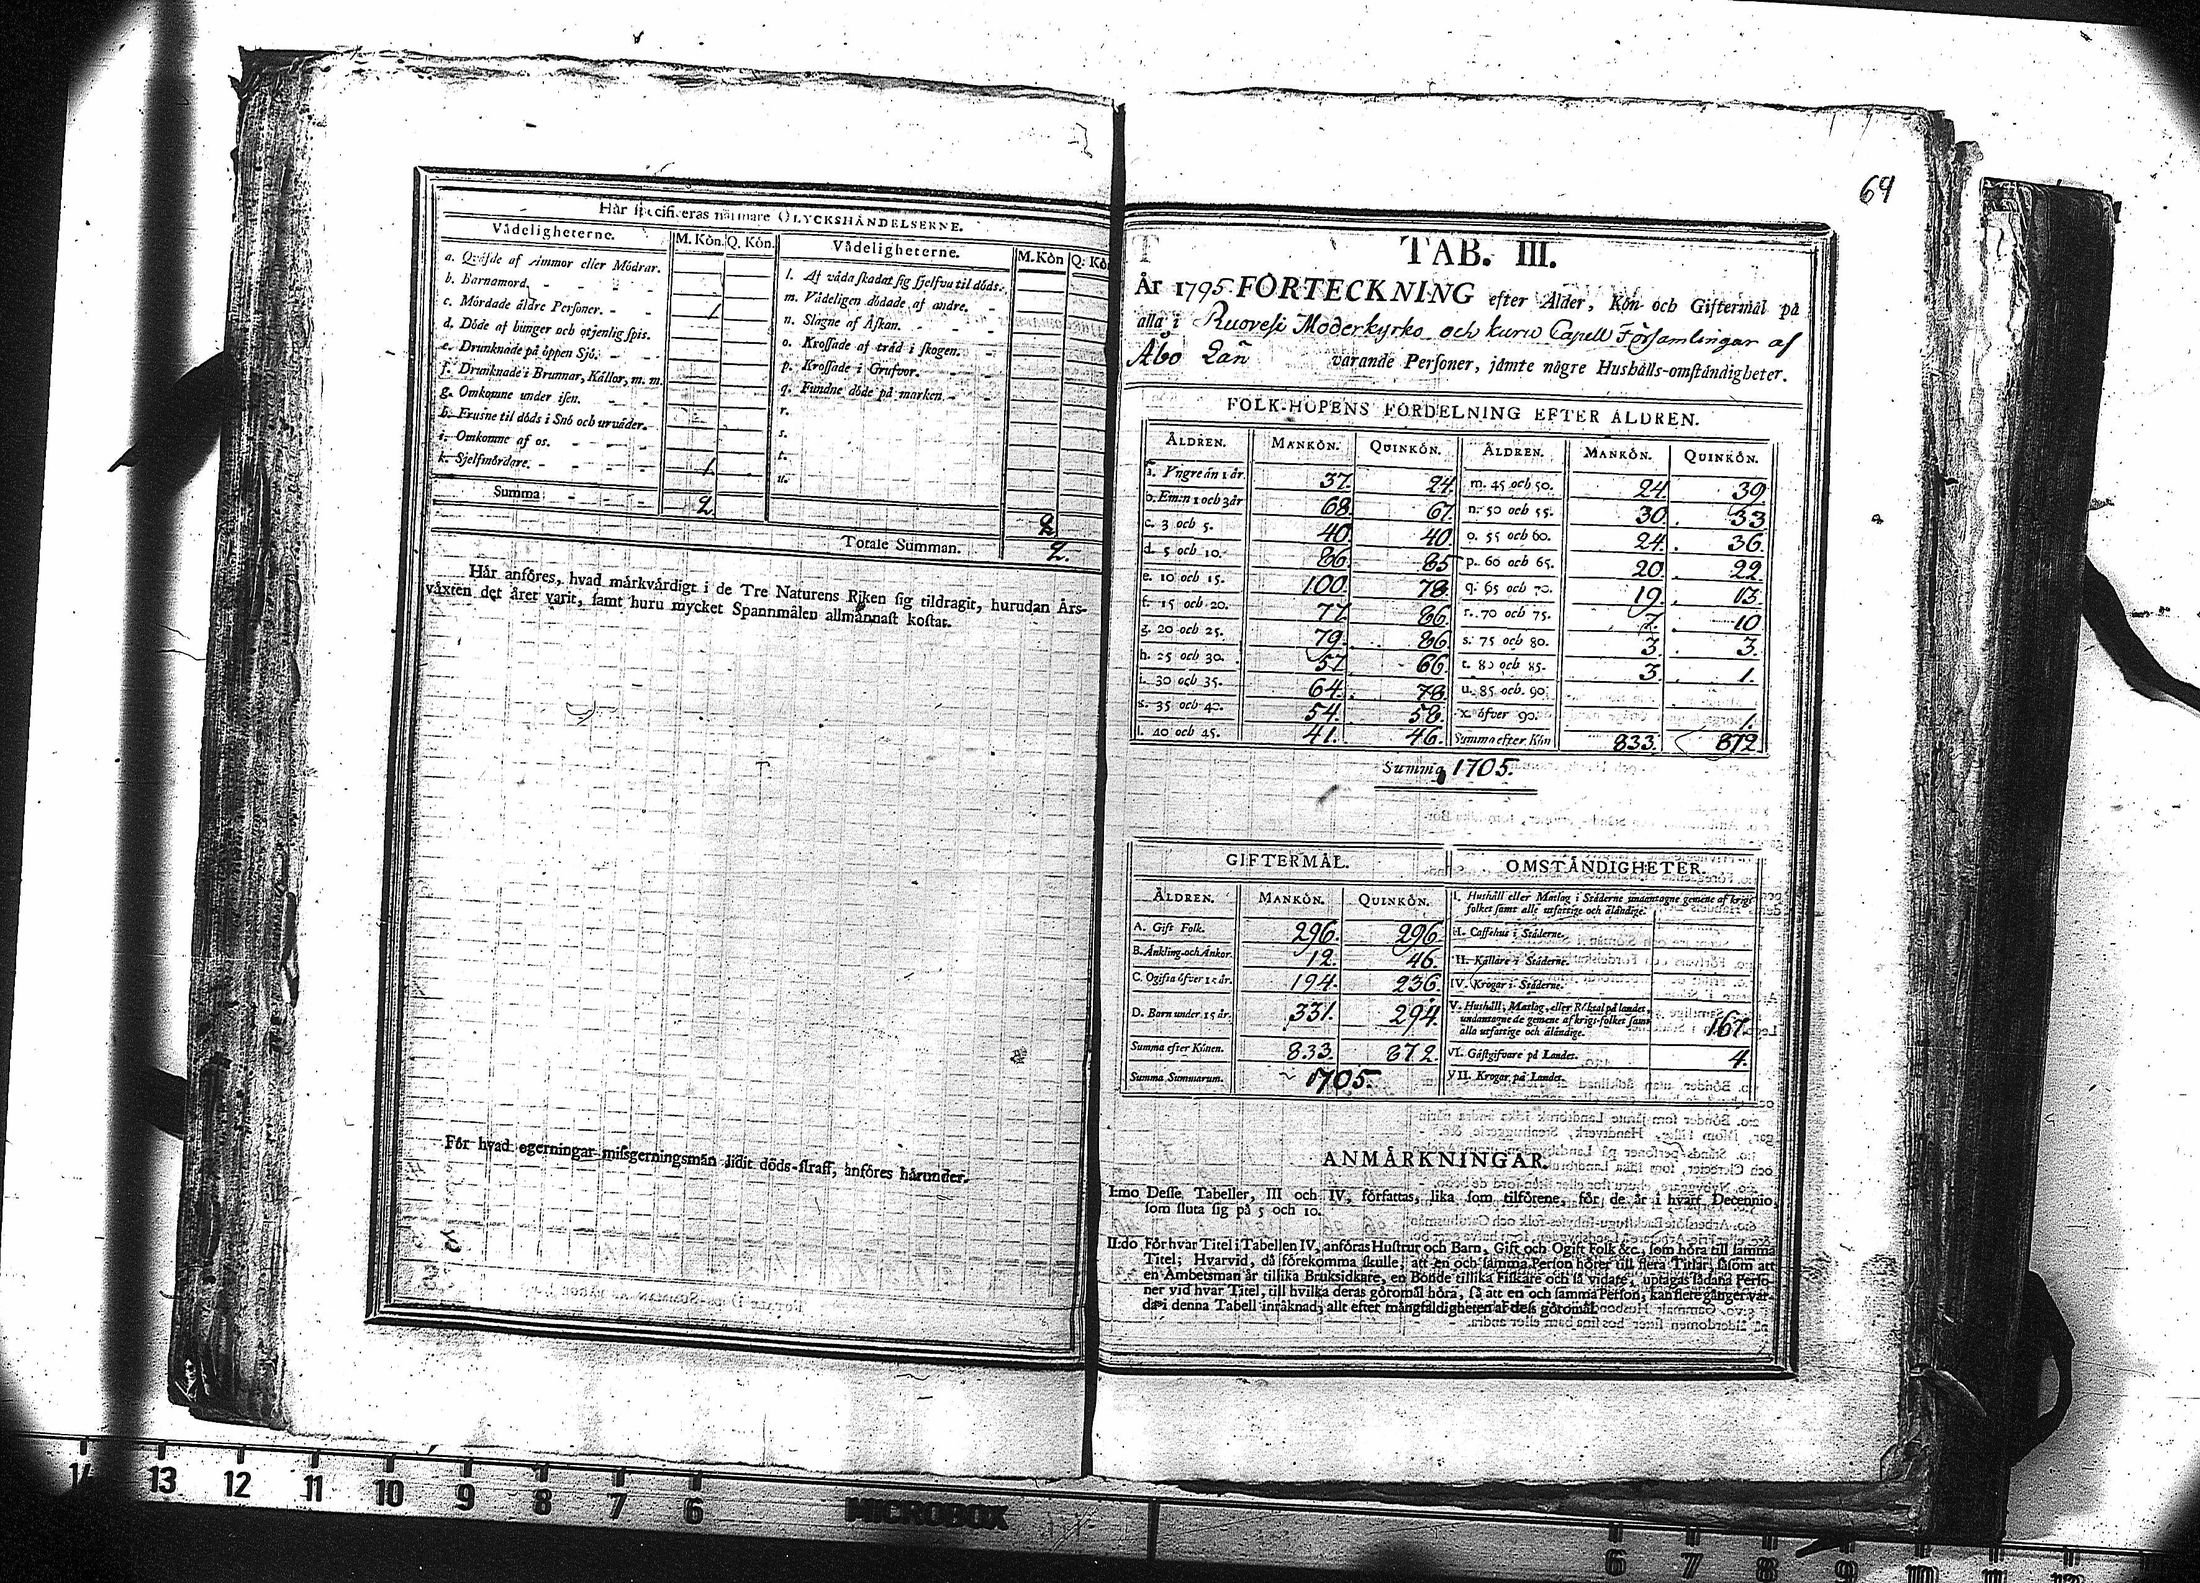 Här specificeras närmare OLYCKSHÄNDELSERNE.
Vådeligheterne. M. Kön. Q. Kön. Vådeligheterne. M. Kön Q. Kön
a. Qväfde af Ammor eller Mödrar.
b. Barnamord.
c. Mördade äldre Personer. 1
d. Döde af hunger och otjenlig spis.
e. Drunknade på öppen Sjö.
f. Drunknade i Brunnar, Källor, m. m.
g. Omkomne under isen.
h. Frusne til döds i Snö och urväder.
i. Omkomne af os.
k. Sjelfmördare. 1.
Summa 2
l. Af våda skadat sig sjelfva til döds.
m. Vådeligen dödade af andre.
n. Slagne af Åskan.
o. Krossade af träd i skogen.
p. Krossade i Grufvor.
q. Fundne döde på marken.
r.
s.
t.
u.
2
Totale Summan. 2.
Här anföres, hvad märkvärdigt i de Tre Naturens Riken sig tildragit, hurudan Års-
växten det året varit, samt huru mycket Spannmålen allmännast kostat.
För hvad ogerningar missgerningsmän lidit döds-straff, anföres härunder.
64
TAB. III.
År 1795 FÖRTECKNING efter Ålder, Kön och Giftermål på
alla i Ruovesi Moderkyrko och kuru Capell Församlingar af
Åbo Län varande Personer, jämte någre Hushålls-omständigheter.
FOLK-HOPENS FÖRDELNING EFTER ÅLDREN.
ÅLDREN. MANKÖN. QUINKÖN. ÅLDREN. MANKÖN. QUINKÖN.
a. Yngre än 1 år. 37. 24. m. 45 och 50. 24. 39.
b. Emin 1 och 3 år 68. 67. n. 50 och 55. 30. 33
c. 3 och 5. 40. 40. o. 55 och 60. 24. 36.
d. 5 och 10. 86. 85 p. 60 och 65. 20. 22.
e. 10 och 15. 100. 78. q. 65 och 70. 19. 13.
f. 15 och 20. 77. 86. r. 70 och 75. 7. 10
g. 20 och 25. 79. 86. s. 75 och 80. 3. 3.
h. 25 och 30. 57. 66. t. 80 och 85. 3. 1.
i. 30 och 35. 64. 78. u. 85 och 90.
k. 35 och 40. 54. 58. x. öfver 90. 1.
l. 40 och 45. 41. 46. Summa efter Kön 833. 872.
Summa 1705.
GIFTERMÅL.
ÅLDREN. MANKÖN. QUINKÖN.
A. Gift Folk. 296. 296.
B. Änkling. och Änkor. 12. 46.
C. Ogifta öfver 15 år. 194. 236.
D. Barn under 15 år. 331. 294.
Summa efter Könen. 833. 872.
Summa Summarum. 1705.
OMSTÄNDIGHETER.
I. Hushåll eller Matlag i Städerne undantagne gemene af krigs-
folket samt alle utfattige och äländige.
II. Caffehus i Städerne.
III. Källare i Städerne.
IV. Krogar i Städerne.
V. Hushåll, Matlag, eller Röktal på landet,
undantagne de gemene af krigs-folket samt
alla utfattige och äländige. 167.
VI. Gästgifvare på Landet. 4.
VII. Krogar på Landet.
ANMÄRKNINGAR.
I:mo Desse Tabeller, III och IV, författas, lika som tilförene, för de år i hvart Decennio,
som sluta sig på 5 och 10.
II:do För hvar Titel i Tabellen IV, anföras Hustrur och Barn, Gift och Ogift Folk &c., som höra till samma
Titel; Hvarvid, då förekomma skulle, att en och samma Person hörer till flera Titlar, såsom att
en Ämbetsman är tillika Bruksidkare, en Bonde tillika Fiskare och så vidare, uptagas sådana Perso-
ner vid hvar Titel, till hvilka deras göromål höra, så att en och samma Person, kan flere gånger var-
da i denna Tabell inräknad, allt efter mångfaldigheten af dess göromål.
14 13 12 11 10 9 8 7 6 MICROBOX 6 7 8 9 10 11 12